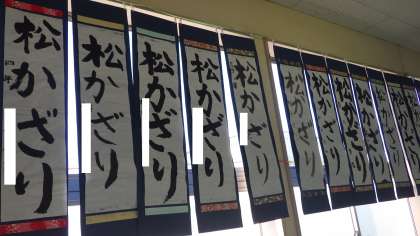 松かざり
松かざり
松かざり
松かざり
松かざり
松かざり
松かざり
松かざり
松かざり